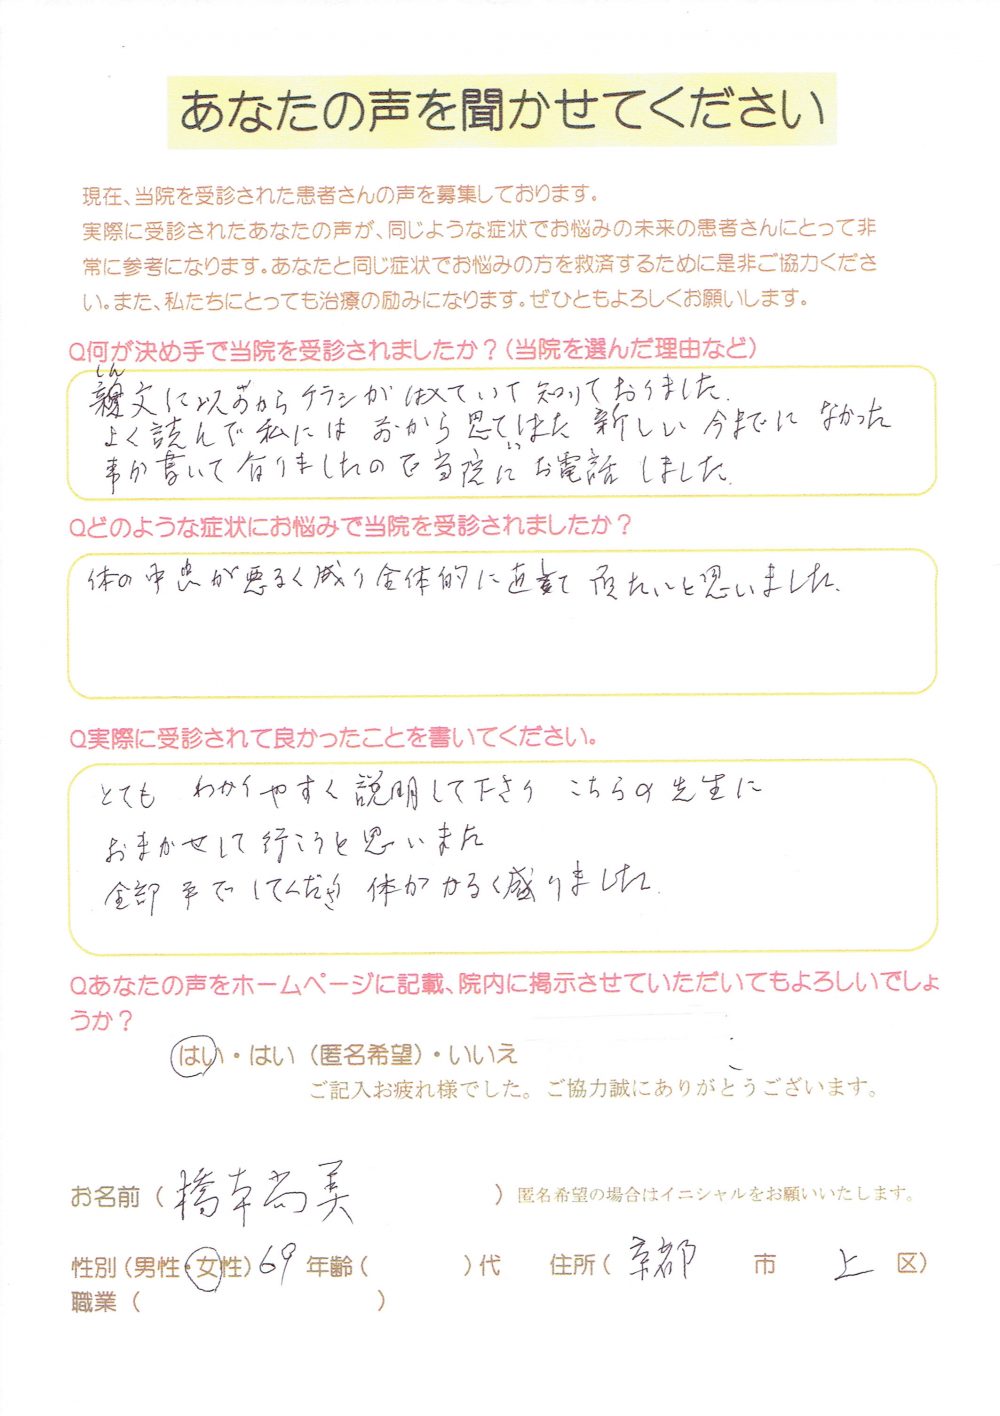 あなたの声を聞かせてください
現在、当院を受診された患者さんの声を募集しております。
実際に受診されたあなたの声が、同じような症状でお悩みの未来の患者さんにとって非
常に参考になります。あなたと同じ症状でお悩みの方を救済するために是非ご協力くださ
い。また、私たちにとっても治療の励みになります。ぜひともよろしくお願いします。
Q何が決め手で当院を受診されましたか？（当院を選んだ理由など）
しん
親文に以前からチラシが はいていて 知りておりました.
よく読んで私には おから 思て 新しい 今までに なかった
事が書いて有りましたので当院に お電話 しました.
Qどのような症状にお悩みで当院を受診されましたか？
体の中心が悪るく成り全体的に 頂たいと思いました.
Q実際に受診されて良かったことを書いてください。
とても わかりやすく説明して下さり こちらの先生に
おまかせして行こうと思いまた
全部 手で してくださり 体がかるく成りました.
Qあなたの声をホームページに記載、院内に掲示させていただいてもよろしいでしょ
うか？
はい・はい（匿名希望）・いいえ
ご記入お疲れ様でした。ご協力誠にありがとうございます。
お名前（ 橋本尚美 ）匿名希望の場合はイニシャルをお願いいたします。
性別（男性・女性）69 年齢（ ）代 住所（ 京都 市 上 区）
職業（ ）